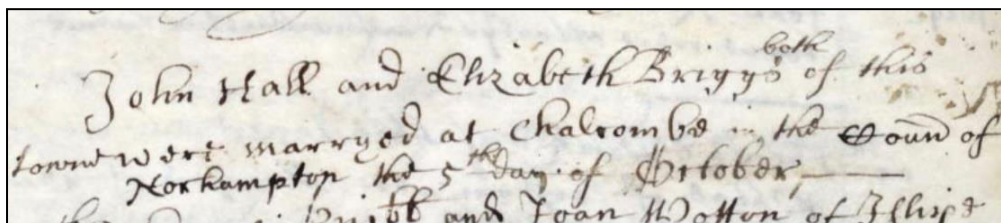 both
John Hall and Elizabeth Briggs of this
towne were marryed at Chalcombe in the Coun̄ of
Norhampton the 5th day of October
and Joan Wotton of